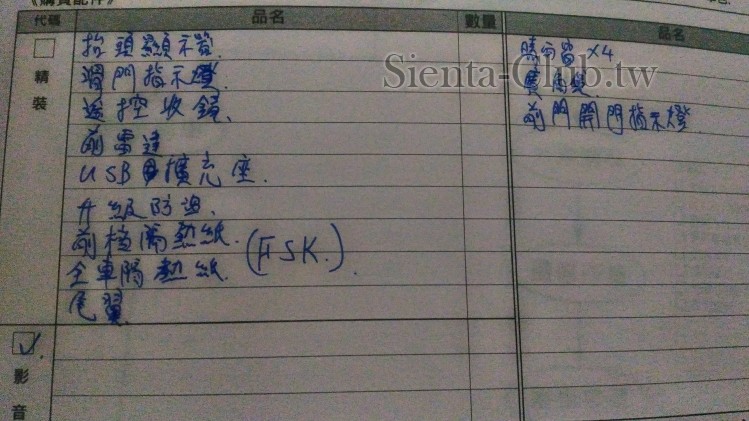 《購買配件》
代碼 品名 數量 品名
精裝
抬頭顯示器.
滑門指示燈.
遙控收鏡.
前雷達
USB擴充座.
升級防盜.
前檔隔熱紙. (FSK.)
全車隔熱紙.
尾翼.
影音
晴雨窗 X4
前門開門指示燈
Sienta-Club.tw